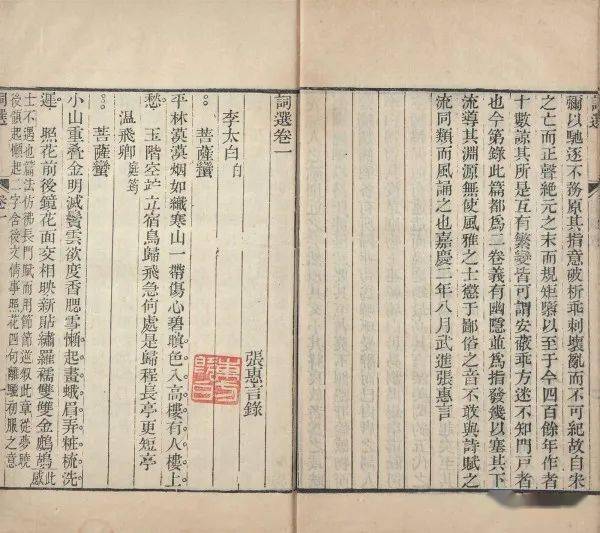 詞選
彌以馳逐不務原其指意破析乖刺壞亂而不可紀故自宋
之亡而正聲絶元之末而規矩隳以至于今四百餘年作者
十數諒其所是互有繁變皆可謂安蔽乖方迷不知門戸者
也今第錄此篇都爲二卷義有幽隱並爲指發幾以塞其下
流導其淵源無使風雅之士懲于鄙俗之音不敢與詩賦之
流同類而風誦之也嘉慶二年八月武進張惠言
詞選卷一
張惠言錄
李太白 白
菩薩蠻
平林漠漠烟如織寒山一帶傷心碧暝色入高樓有人樓上
愁 玉階空竚立宿鳥歸飛急何處是歸程長亭更短亭
温飛卿 庭筠
菩薩蠻
小山重叠金明滅鬢雲欲度香腮雪懶起畫蛾眉弄粧梳洗
遲 照花前後鏡花面交相映新貼繡羅襦雙雙金鷓鴣此感
士不遇也篇法仿佛長門賦而用節節逆叙此章從夢曉
後領起懶起二字含後文情事照花四句離騷初服之意
詞選 卷一 一